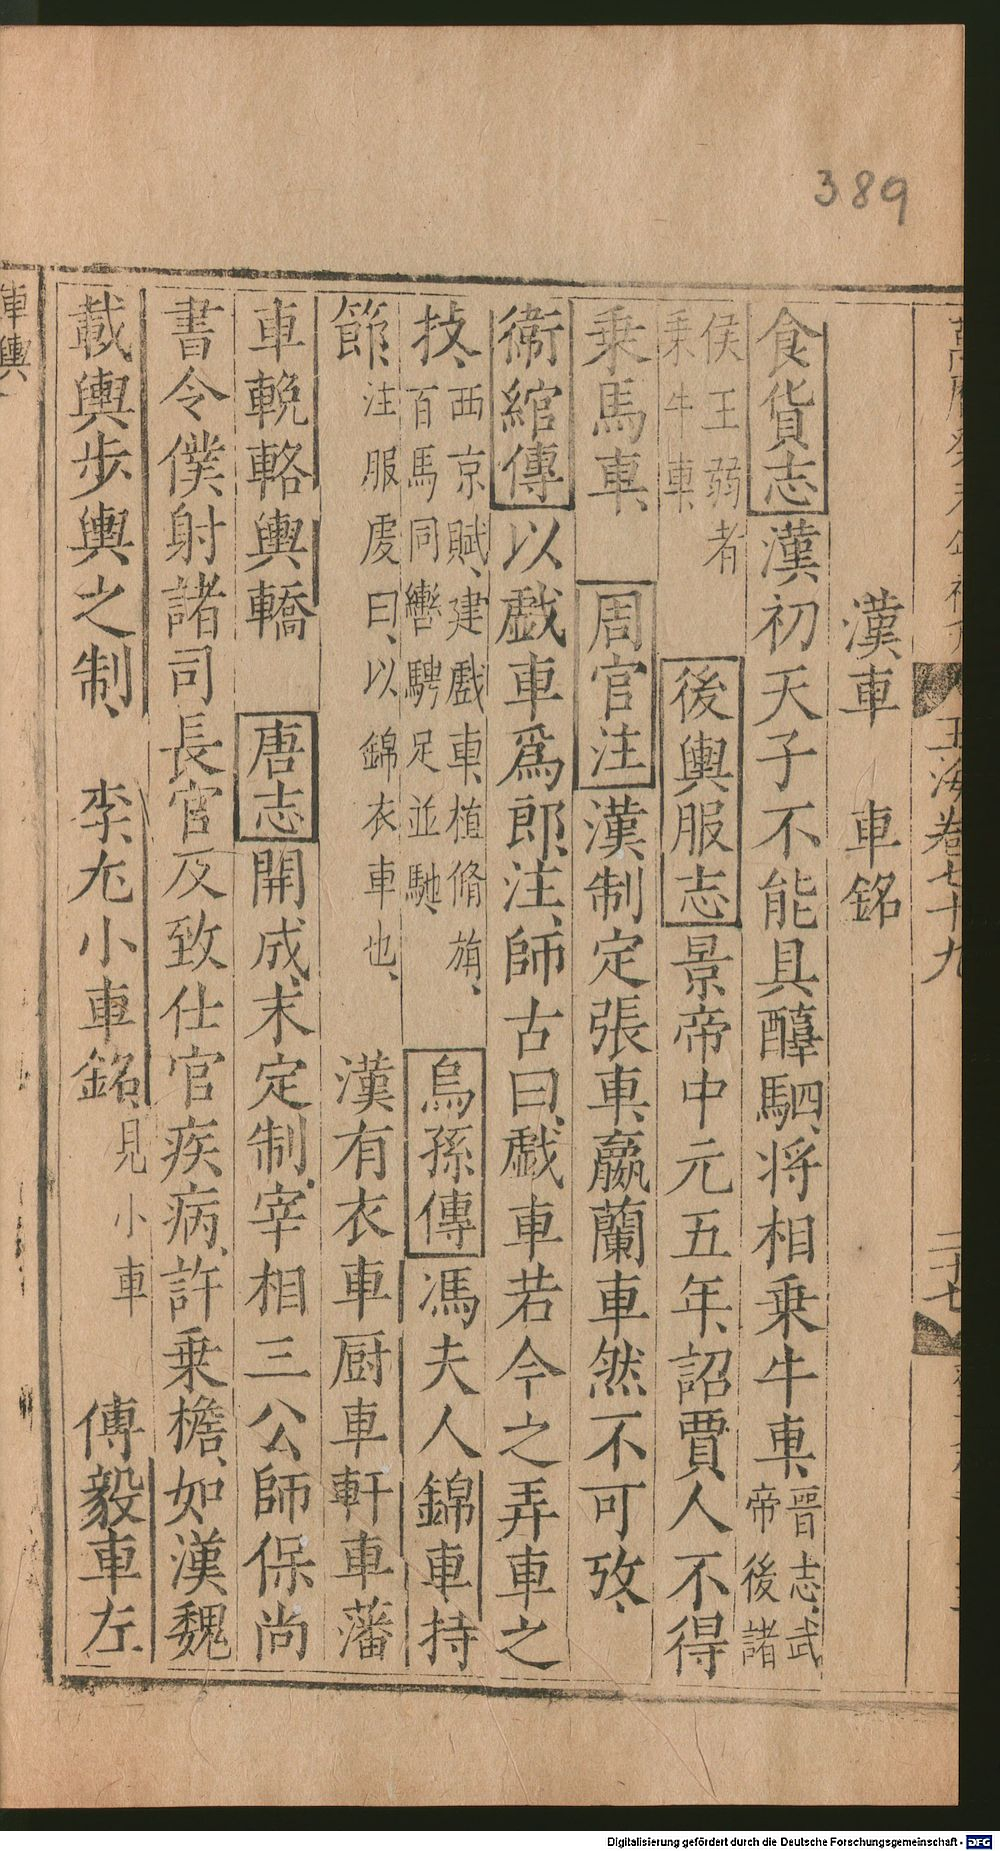 389
玉海卷七十九 二十七
漢車 車銘
食貨志漢初天子不能具醇駟將相乗牛車晉志武帝後諸
侯王弱者乗牛車 後輿服志景帝中元五年詔賈人不得
乗馬車 周官注漢制定張車羸蘭車然不可攷
衛綰傳以戯車爲郎注師古曰戯車若今之弄車之
技西京賦建戯車植脩旃百馬同轡騁足並馳 烏孫傳馮夫人錦車持
節注服虔曰以錦衣車也 漢有衣車厨車軒車藩
車輓輅輿轎 唐志開成末定制宰相三公師保尚
書令僕射諸司長官及致仕官疾病許乗檐如漢魏
載輿步輿之制 李尤小車銘見小車 傅毅車左
車輿
Digitalisierung gefördert durch die Deutsche Forschungsgemeinschaft - DFG